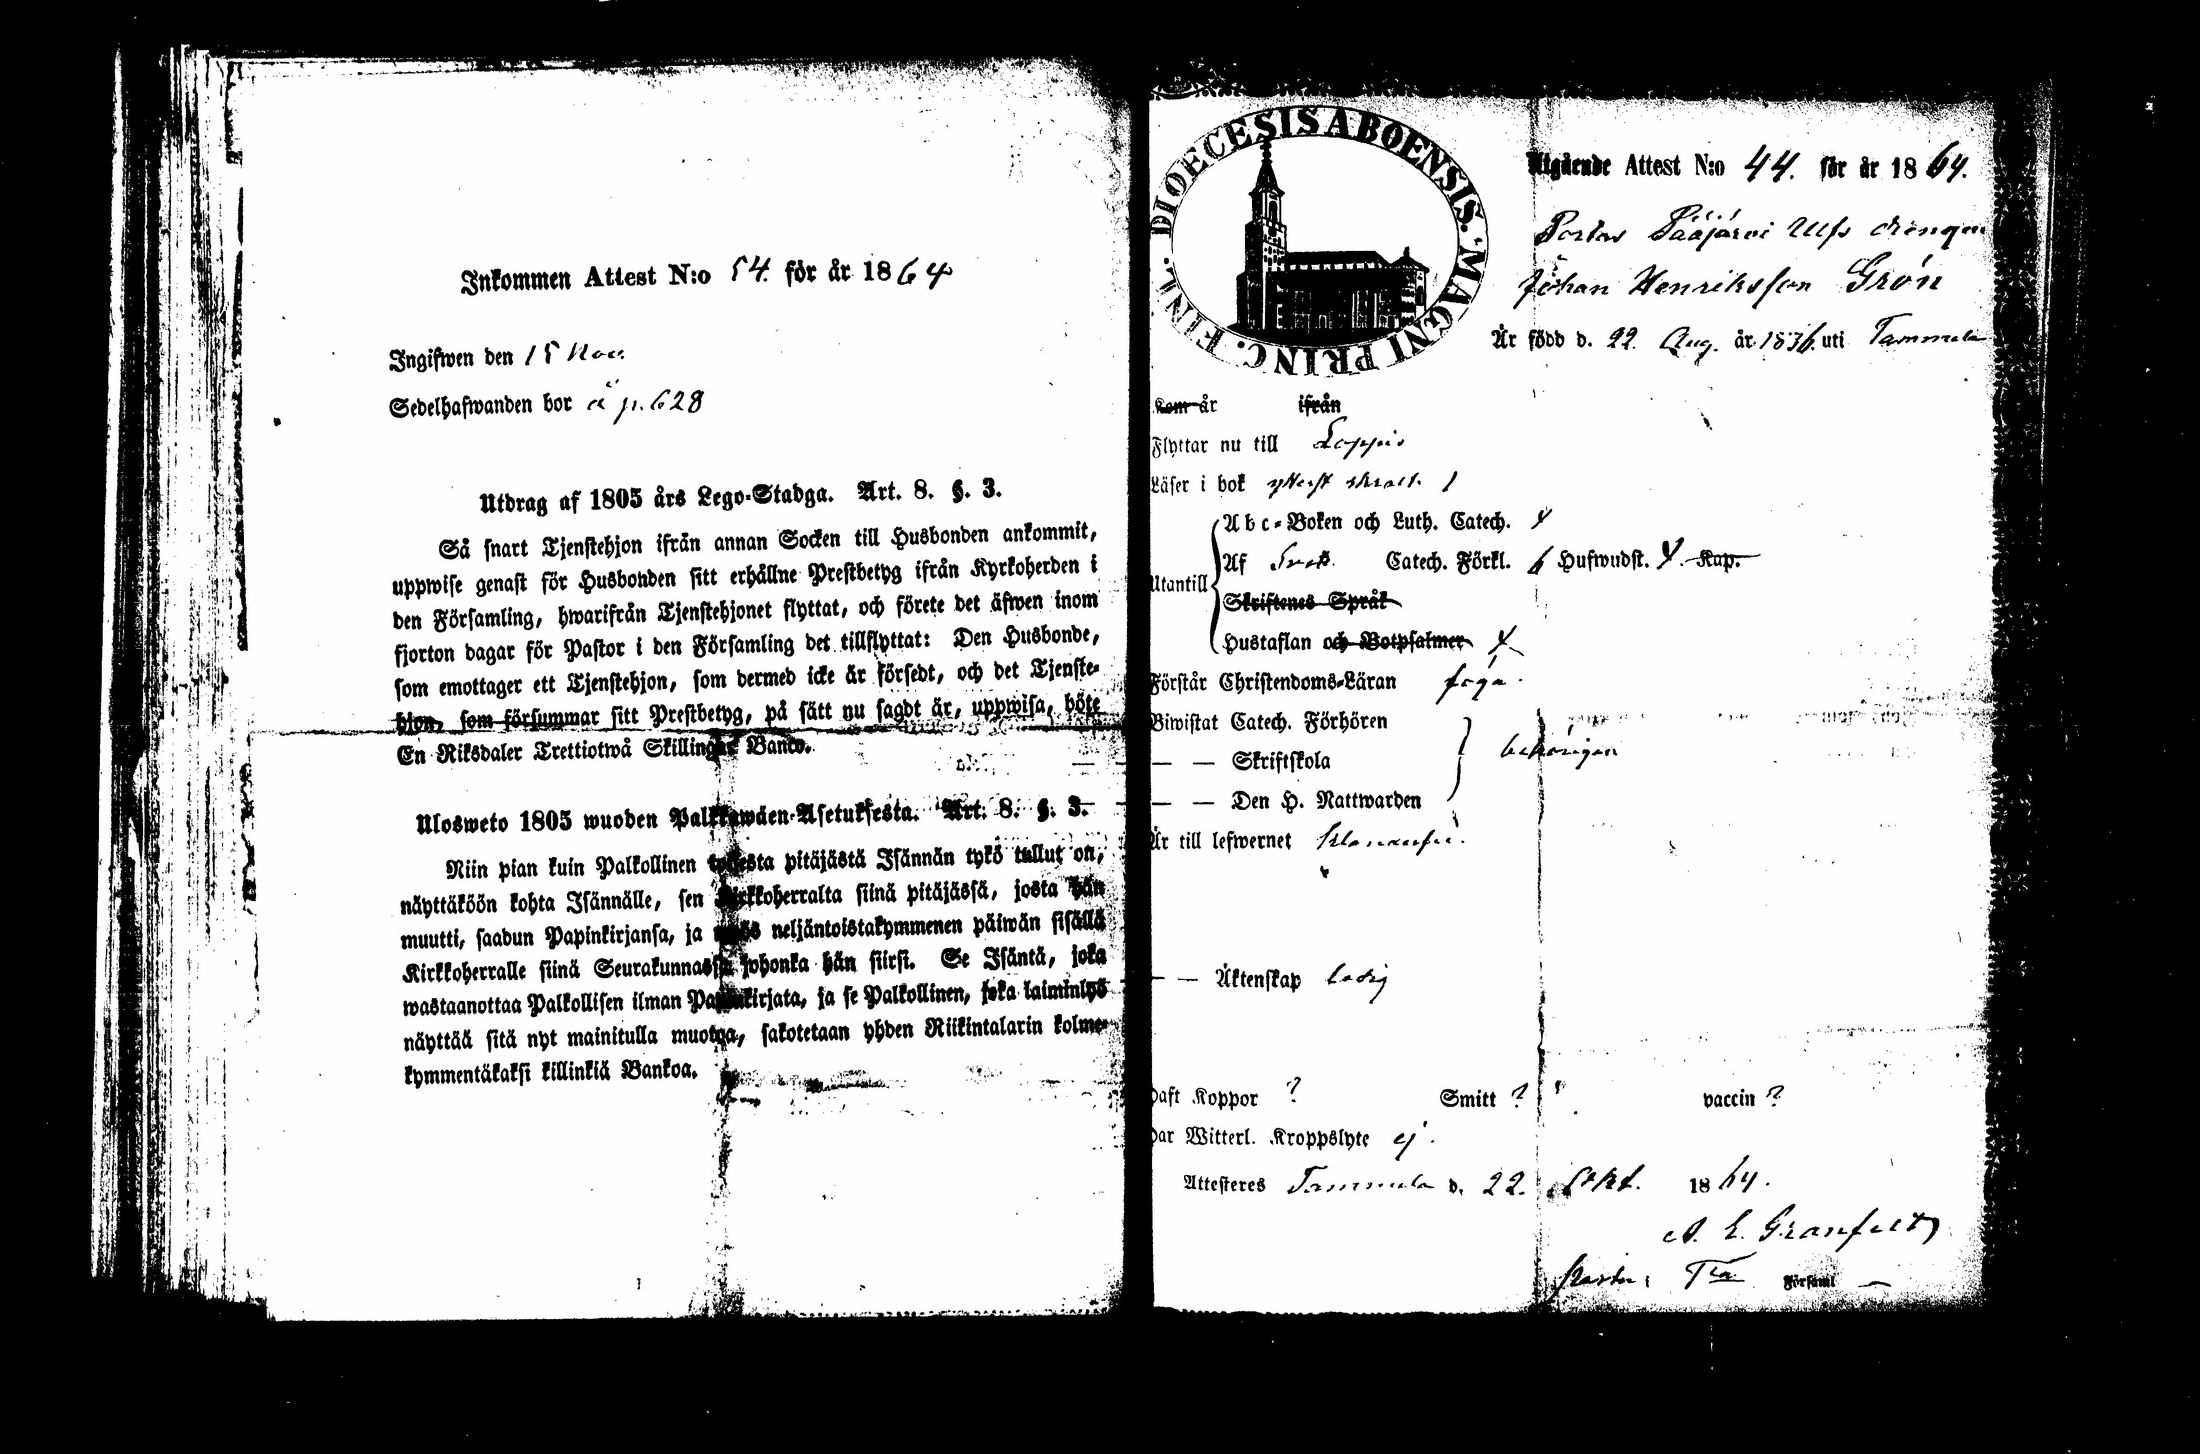 Inkommen Attest N:o 54. för år 1864
Ingifwen den 15 Nov.
Sedelhafwanden bor å p. 628
Utdrag af 1805 års Lego-Stadga. Art. 8. §. 3.
Så snart Tjenstehjon ifrån annan Socken till Husbonden ankommit,
uppwise genast för Husbonden sitt erhållne Prestbetyg ifrån Kyrkoherden i
den Församling, hwarifrån Tjenstehjonet flyttat, och förete det äfwen inom
fjorton dagar för Pastor i den Församling det tillflyttat: Den Husbonde,
som emottager ett Tjenstehjon, som dermed icke är försedt, och det Tjenste-
hjon, som försummar sitt Prestbetyg, på sätt nu sagdt är, uppwisa, böte
En Riksdaler Trettiotwå Skillingar Banco.
Ulosweto 1805 wuoden Palkkawäen-Asetuksesta. Art. 8. §. 3.
Niin pian kuin Palkollinen toisesta pitäjästä Isännän tykö tullut on,
näyttäköön kohta Isännälle, sen Kirkkoherralta siinä pitäjässä, josta hän
muutti, saadun Papinkirjansa, ja myös neljäntoistakymmenen päiwän sisällä
Kirkkoherralle siinä Seurakunnassa johonka hän siirsi. Se Isäntä, joka
wastaanottaa Palkollisen ilman Papinkirjata, ja se Palkollinen, joka laiminlyö
näyttää sitä nyt mainitulla muotoa, sakotetaan yhden Riikintalarin kolme-
kymmentäkaksi killinkiä Bankoa.
DIOECESIS ABOENSIS. MAGNI PRINC. FINL.
Utgående Attest N:o 44. för år 1864.
Portas Pääjärvi Ulfs drengen
Johan Henriksson Grön
Är född d. 22 Aug. år 1836. uti Tammela
Kom år ifrån
Flyttar nu till Loppis
Läser i bok ytterst swalt.
Utantill
Abc-Boken och Luth. Catech. 4
Af Catech. Förkl. 6 Hufwudst. 4. Kap.
Skriftenes Språk
Hustaflan och Botpsalmer 4
Förstår Christendoms-Läran föga.
Biwistat Catech. Förhören
— — Skriftskola behörigen
— — Den H. Nattwarden
Är till lefwernet klanderfri.
— — Äktenskap ledig
Haft Koppor ? Smitt ? vaccin ?
Har Witterl. Kroppslyte ej.
Attesteres Tammela d. 22. Okt. 1864.
A. E. Granfelt
Pastor i Tla Församl